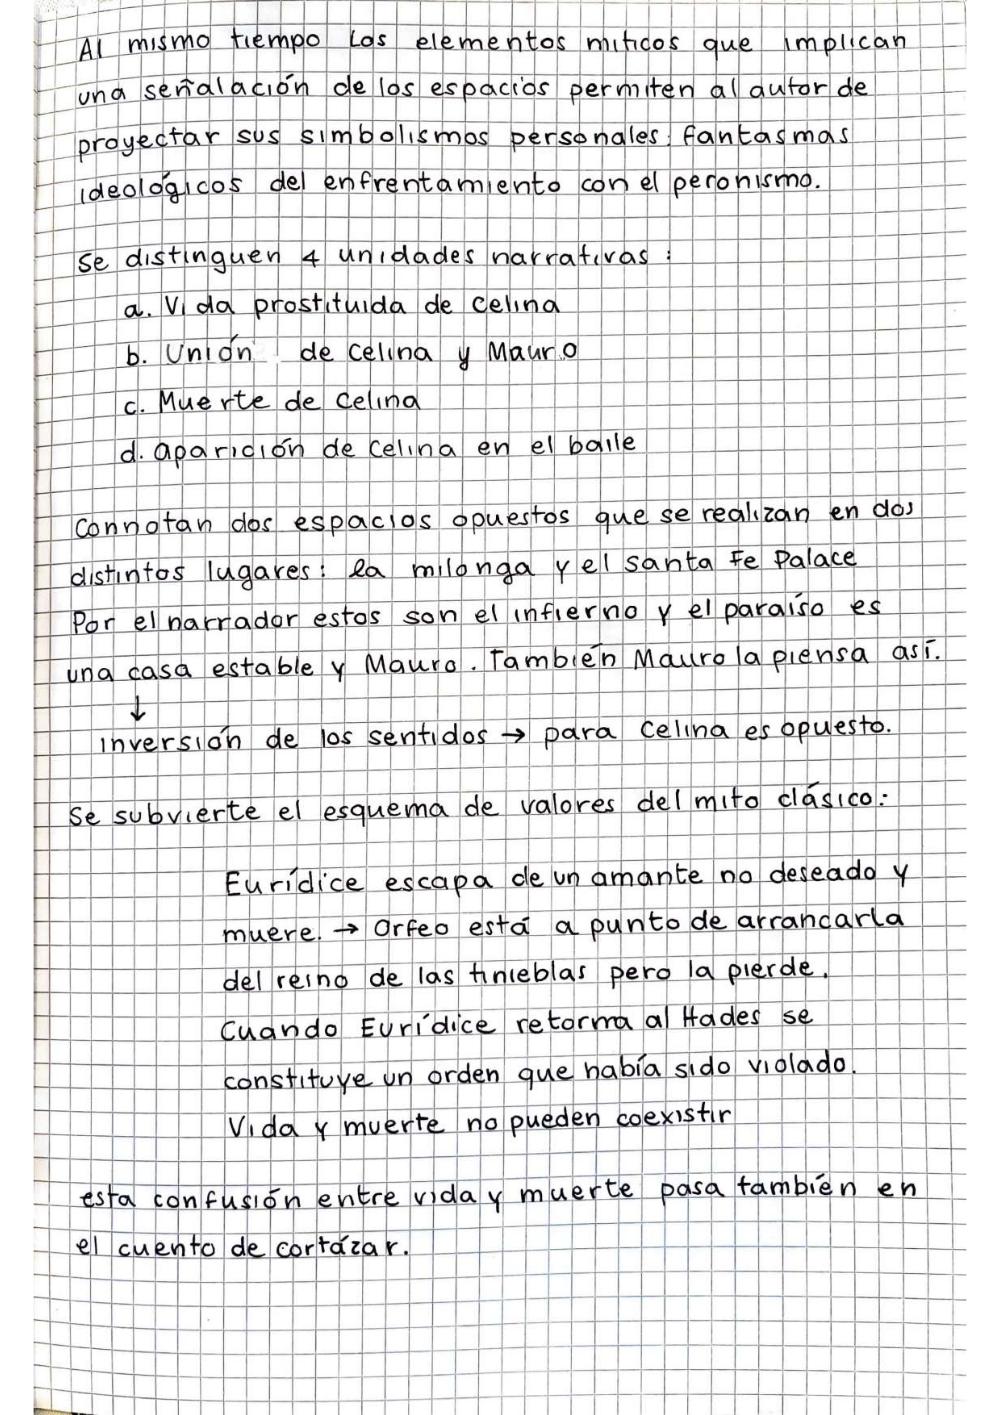 Al mismo tiempo los elementos míticos que implican
una señalación de los espacios permiten al autor de
proyectar sus simbolismos personales: fantasmas
ideológicos del enfrentamiento con el peronismo.
Se distinguen 4 unidades narrativas:
a. Vida prostituida de Celina
b. Unión de Celina y Mauro
c. Muerte de Celina
d. aparición de Celina en el baile
Connotan dos espacios opuestos que se realizan en dos
distintos lugares: la milonga y el Santa Fe Palace
Por el narrador estos son el infierno y el paraíso es
una casa estable y Mauro. También Mauro la piensa así.
↓
inversión de los sentidos → para Celina es opuesto.
Se subvierte el esquema de valores del mito clásico:
Eurídice escapa de un amante no deseado y
muere. → Orfeo está a punto de arrancarla
del reino de las tinieblas pero la pierde.
Cuando Eurídice retorna al Hades se
constituye un orden que había sido violado.
Vida y muerte no pueden coexistir
esta confusión entre vida y muerte pasa también en
el cuento de cortázar.